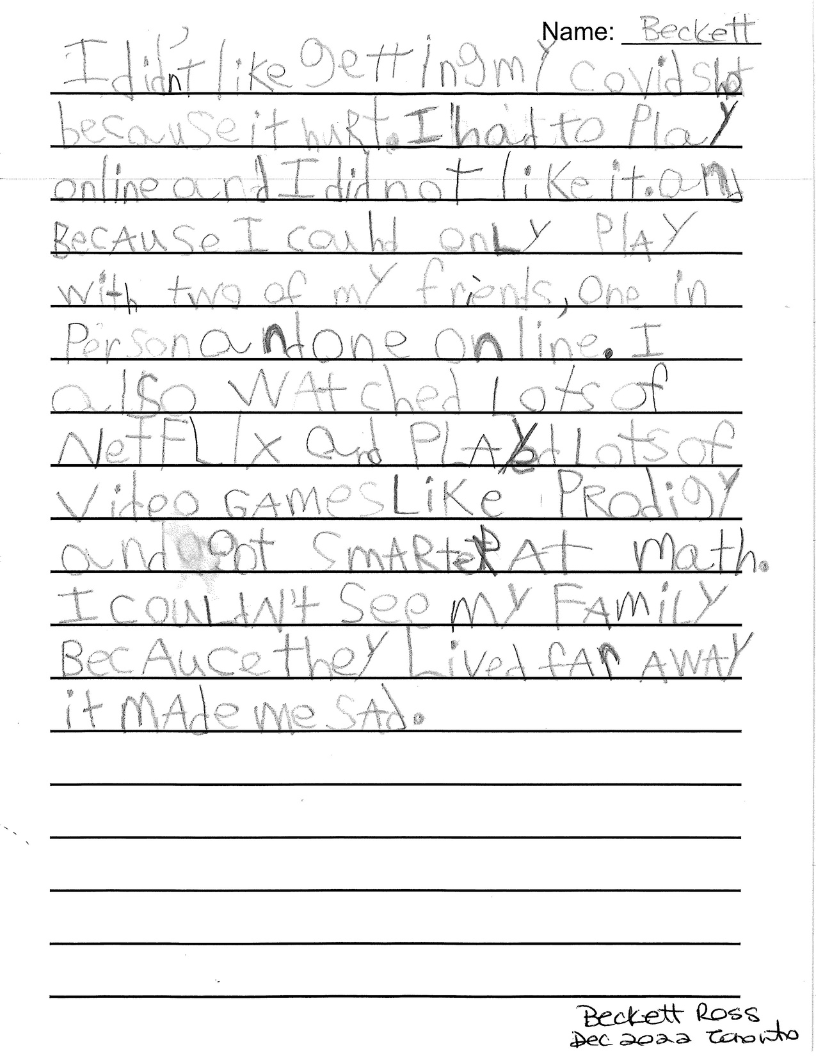 Name: Beckett
I didn't like getting my covid shot
because it hurt. I had to Play
online and I did not like it. and
BecAuse I could onLy PlAY
with two of my friends, One in
Person and one online. I
also WAtched Lots of
NetFLix and PLAYed Lots of
Video GAMes Like PRodigy
and got SmARteR At math.
I couLdN't See MY FAmiLY
BecAuce they Lived fAr AWAY
it mAde me SAd.
Beckett Ross
Dec 2022 Toronto